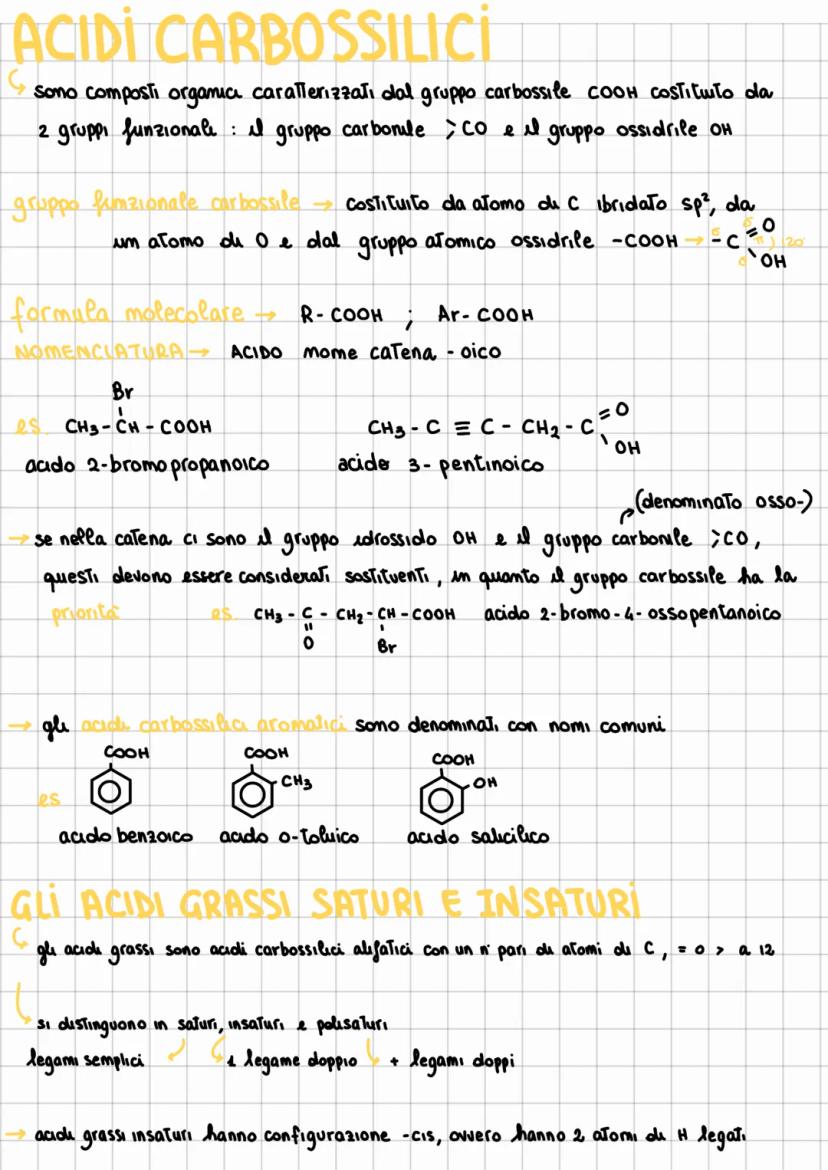 ACIDI CARBOSSILICI
sono composti organici caratterizzati dal gruppo carbossile COOH costituito da
2 gruppi funzionali : il gruppo carbonile >CO e il gruppo ossidrile OH
gruppo funzionale carbossile → costituito da atomo di C ibridato sp², da
un atomo di O e dal gruppo atomico ossidrile -COOH → - C = O OH
σ σ π 120 σ
formula molecolare → R- COOH ; Ar- COOH
NOMENCLATURA → ACIDO nome catena - oico
Br
es. CH3 - CH - COOH CH3 - C ≡ C - CH2 - C = O
OH
acido 2-bromopropanoico acido 3- pentinoico
(denominato osso-)
→ se nella catena ci sono il gruppo idrossido OH e il gruppo carbonile >CO,
questi devono essere considerati sostituenti, in quanto il gruppo carbossile ha la
priorità es. CH3 - C - CH2 - CH - COOH acido 2-bromo-4-ossopentanoico
O Br
→ gli acidi carbossilici aromatici sono denominati con nomi comuni
COOH COOH COOH
CH3 OH
es
acido benzoico acido o-toluico acido salicilico
GLI ACIDI GRASSI SATURI E INSATURI
gli acidi grassi sono acidi carbossilici alifatici con un n° pari di atomi di C , = o > a 12
si distinguono in saturi, insaturi e polisaturi
legami semplici 1 legame doppio + legami doppi
→ acidi grassi insaturi hanno configurazione -cis, ovvero hanno 2 atomi di H legati